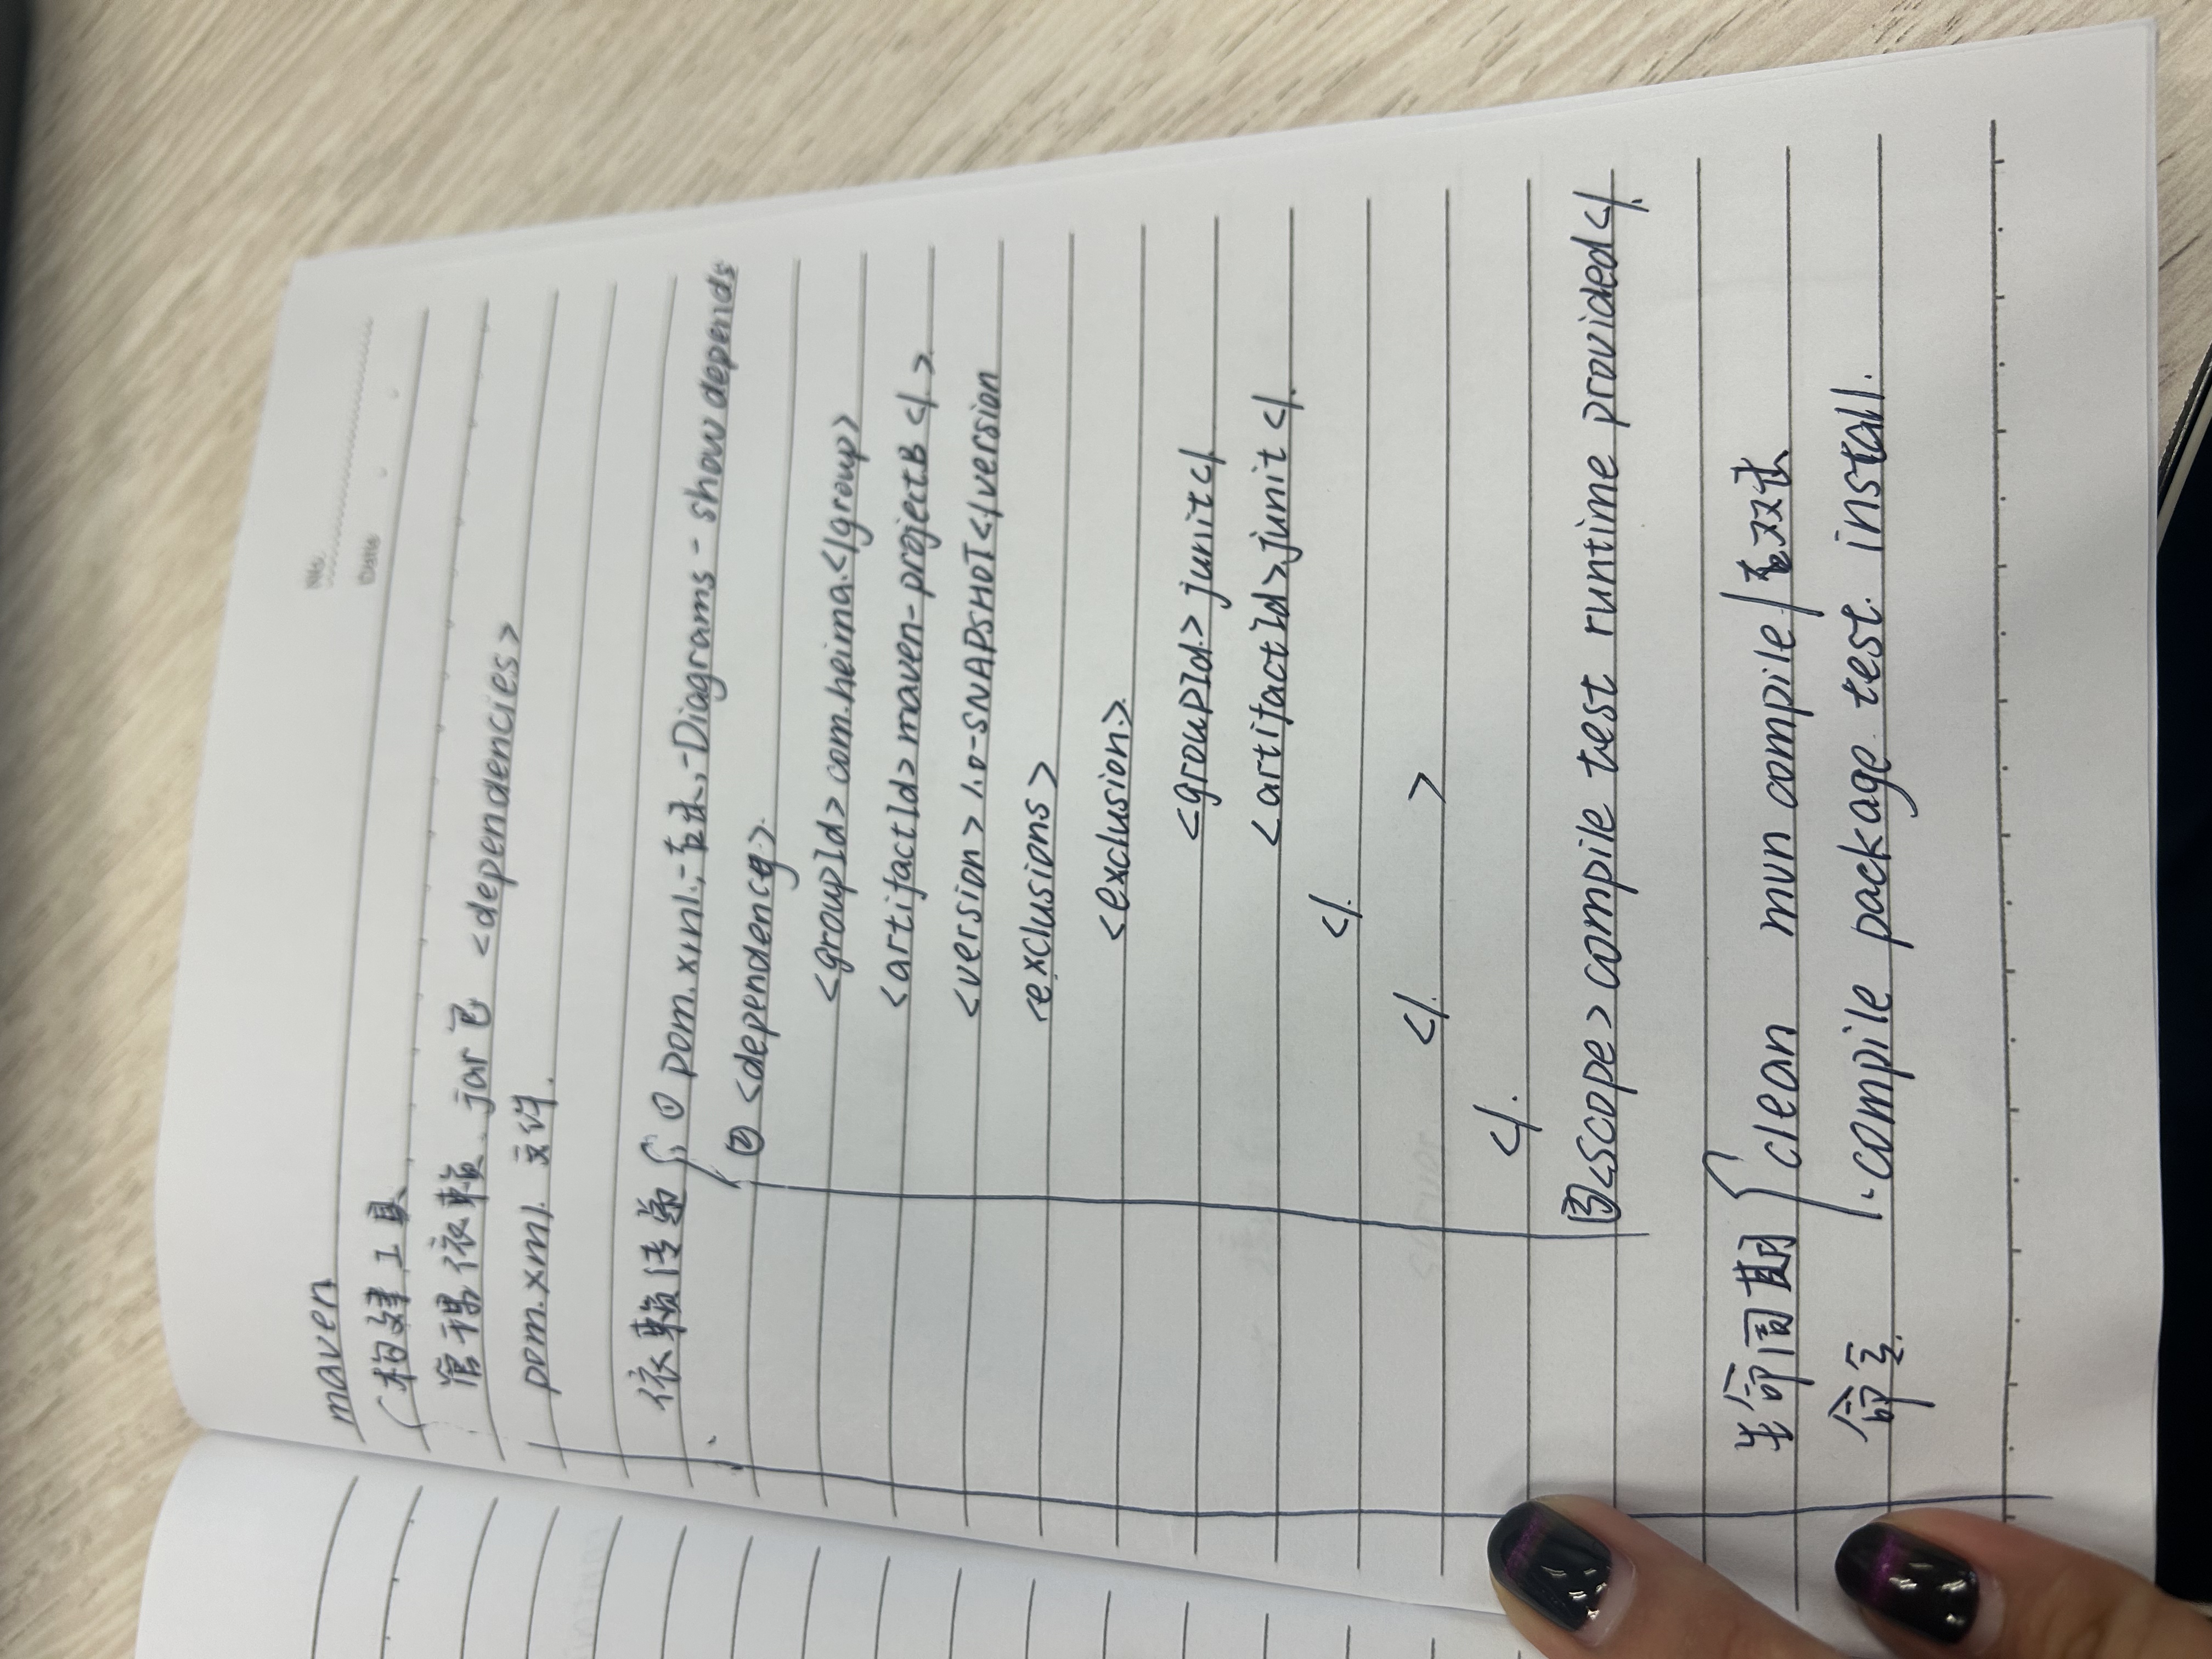 No.
Date
maven
构建工具
管理依赖 jar包 <dependencies>
pom.xml 文件.
依赖传递 ① pom.xml-右击-Diagrams-show depends
② <dependency>
<groupId>com.heima.</group>
<artifactId>maven-projectB</ >
<version>1.0-SNAPSHOT</version
<exclusions>
<exclusion>
<groupId>junit</
<artifactId>junit</
</
</ >
</
③<scope>compile test runtime provided</
生命周期 clean mvn compile/右双击
命令 compile package test install.